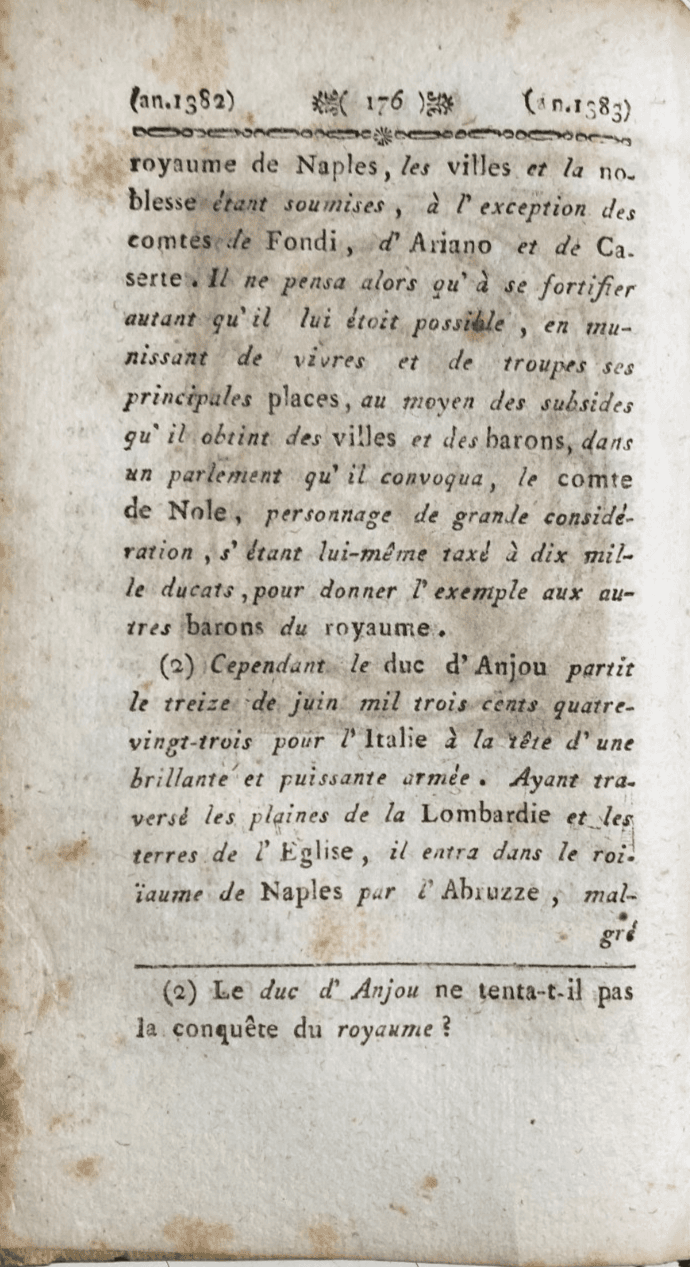 (an.1382) ( 176 ) (an.1383)
royaume de Naples, les villes et la no-
blesse étant soumises, à l'exception des
comtes de Fondi, d'Ariano et de Ca-
serte. Il ne pensa alors qu'à se fortifier
autant qu'il lui étoit possible, en mu-
nissant de vivres et de troupes ses
principales places, au moyen des subsides
qu'il obtint des villes et des barons, dans
un parlement qu'il convoqua, le comte
de Nole, personnage de grande considé-
ration, s'étant lui-même taxé à dix mil-
le ducats, pour donner l'exemple aux au-
tres barons du royaume.
(2) Cependant le duc d'Anjou partit
le treize de juin mil trois cents quatre-
vingt-trois pour l'Italie à la tête d'une
brillante et puissante armée. Ayant tra-
versé les plaines de la Lombardie et les
terres de l'Eglise, il entra dans le roi-
ïaume de Naples par l'Abruzze, mal-
gré
(2) Le duc d'Anjou ne tenta-t-il pas
la conquête du royaume?